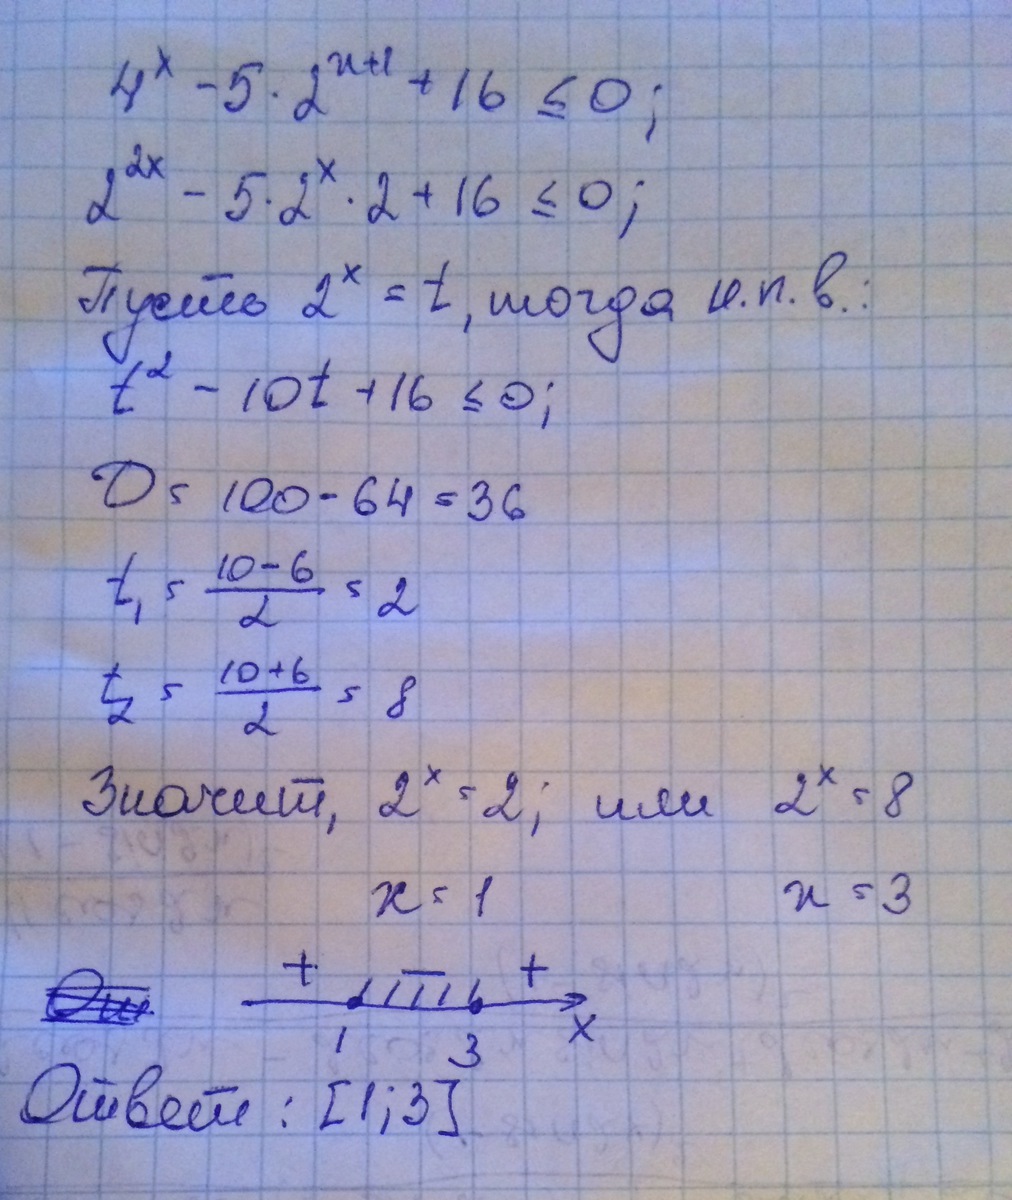 4^x - 5 · 2^{x+1} + 16 ≤ 0;
2^{2x} - 5 · 2^x · 2 + 16 ≤ 0;
Пусть 2^x = t, тогда н.п.в.:
t^2 - 10t + 16 ≤ 0;
D = 100 - 64 = 36
t_1 = \frac{10-6}{2} = 2
t_2 = \frac{10+6}{2} = 8
Значит, 2^x = 2; или 2^x = 8
x = 1 x = 3
+ − +
1 3 x
Ответ: [1;3]